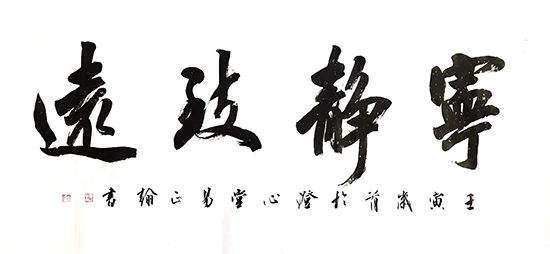 寧靜致遠
壬寅歲首於澄心堂易正翰書